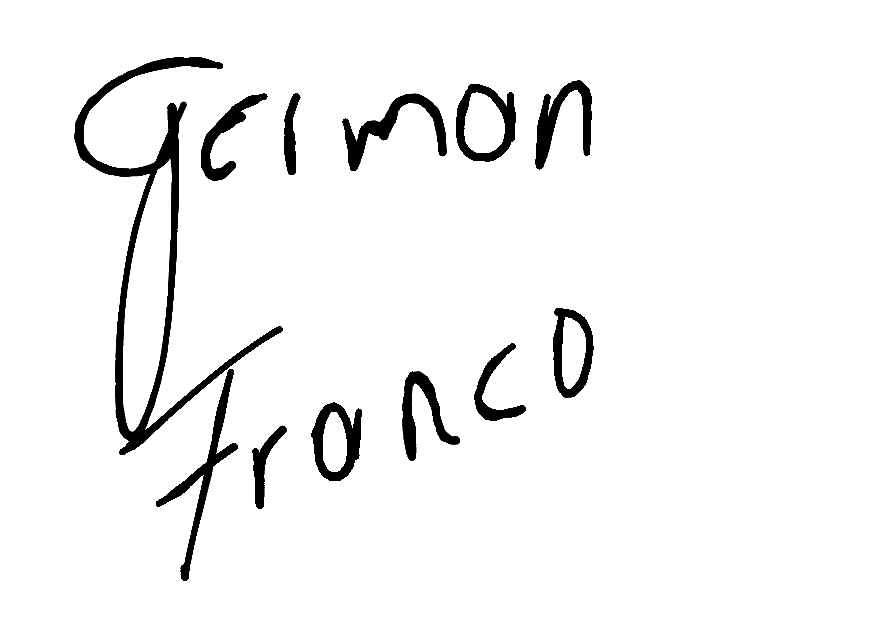 German
Franco